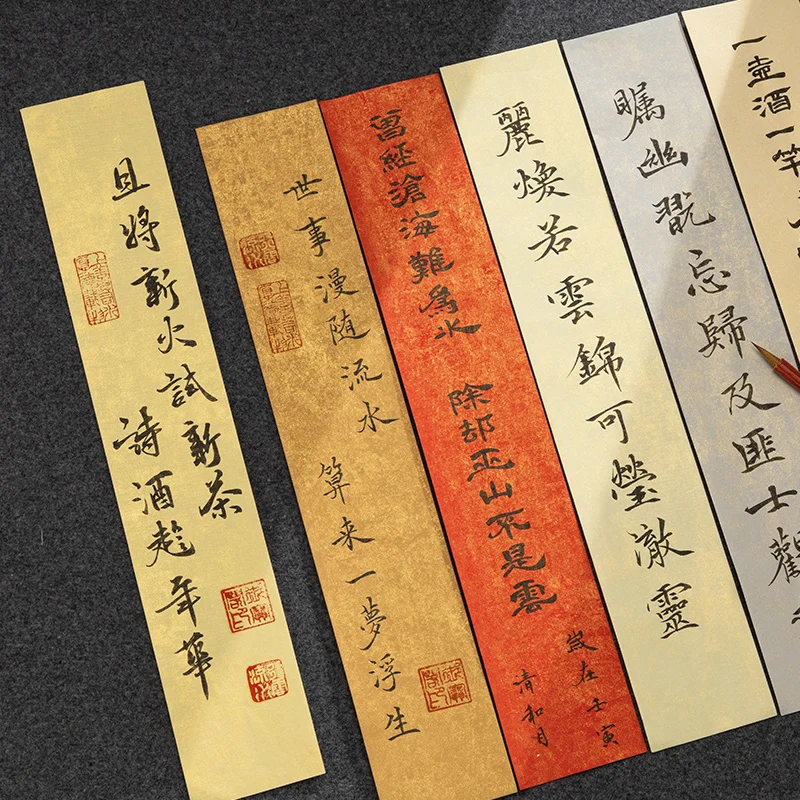 且将新火試新茶
詩酒趁年華
世事漫随流水
算来一夢浮生
曾經滄海難為水
除却巫山不是雲
歲在壬寅
清和月
麗煥若雲錦可瑩澈靈
矚幽翫忘歸及匪士觀
一壺酒一竿